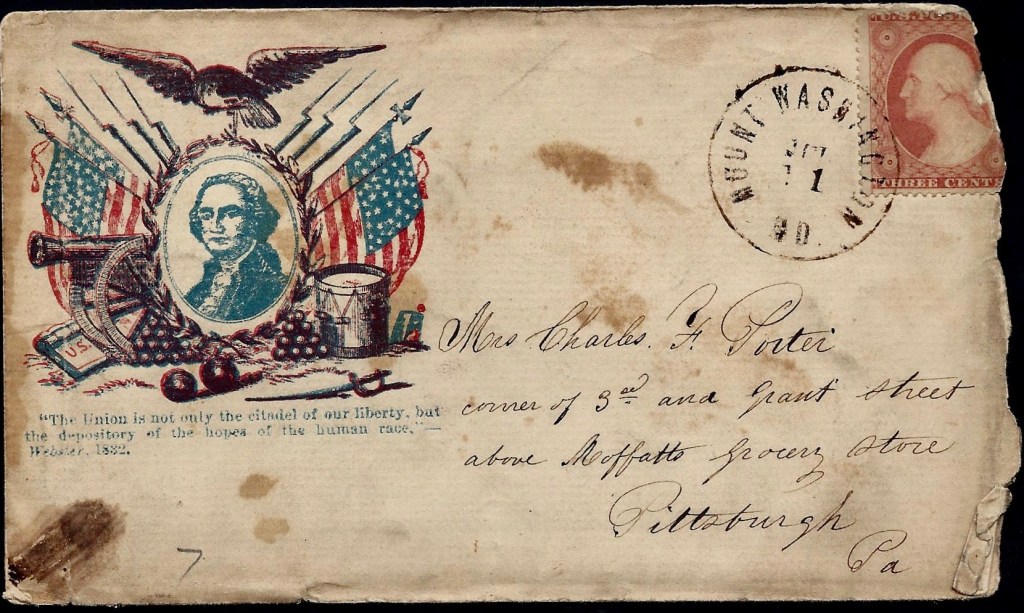 U.S. POST
THREE CENTS
MOUNT WASHINGTON
1
MD.
U.S.
"The Union is not only the citadel of our liberty, but
the depository of the hopes of the human race,"—
Webster, 1832.
Mrs Charles. F. Porter
corner of 3rd and Grant street
above Moffatts Grocery Store
Pittsburgh
Pa
7